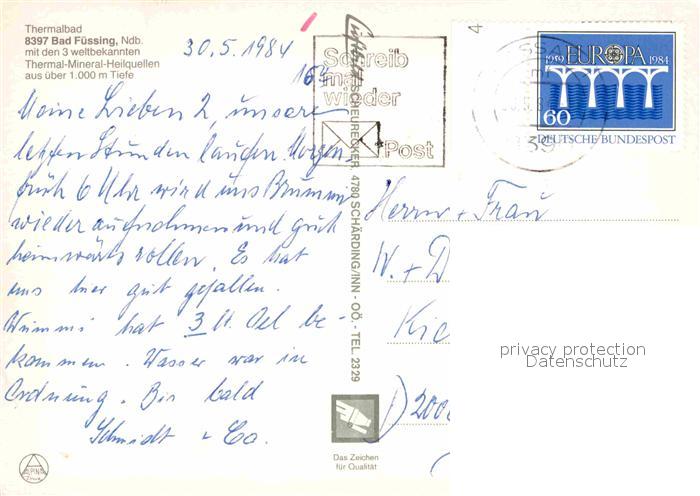 Thermalbad
8397 Bad Füssing, Ndb.
mit den 3 weltbekannten
Thermal-Mineral-Heilquellen
aus über 1.000 m Tiefe
30.5.1984
164
Meine Lieben 2, unsere
letzten Stunden laufen. Morgen
früh 6 Uhr wird uns Brummi
wieder aufnehmen und gut
heimwärts rollen. Es hat
uns hier gut gefallen.
Wummi hat 3 lt. Oel be-
kommen. Wasser war in
Ordnung. Bis bald
Schmidt & Co.
ALPINA
Druck
SCHEURECKER, 4780 SCHÄRDING/INN - OÖ. - TEL. 2329
Das Zeichen
für Qualität
Schreib
mal
wieder
Post
4
1959 EUROPA 1984
60
DEUTSCHE BUNDESPOST
Herrn + Frau
W. + D
Kie
D 2000
privacy protection
Datenschutz